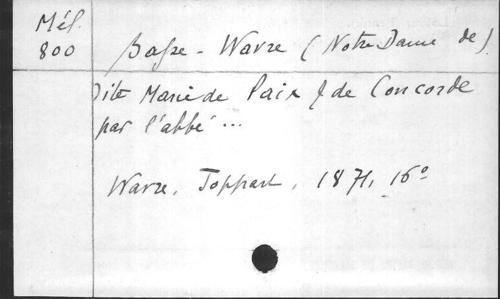 Mél.
800
Basse-Wavre (Notre Dame de)
Dite Marie de Paix & de Concorde
par l'abbé ...
Wavre, Toppart, 1871, 16°